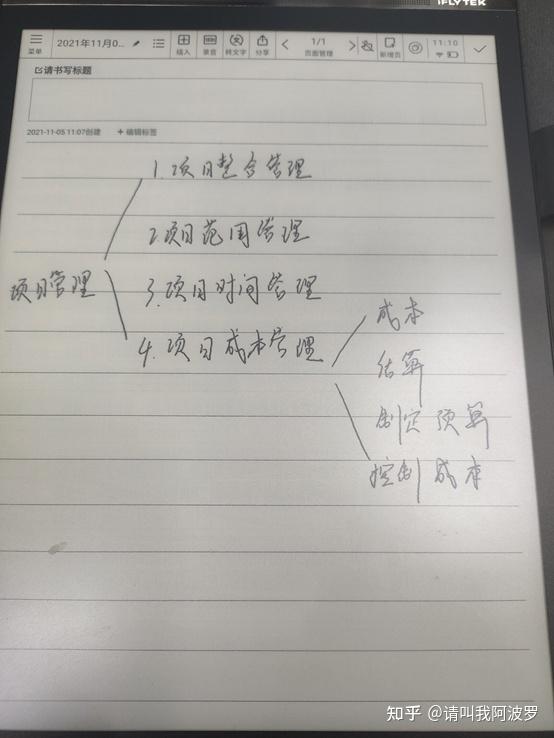 iFLYTEK
菜单 2021年11月0... 插入 录音 转文字 分享 1/1 页面管理 新增页 11:10
请书写标题
2021-11-05 11:07创建 + 编辑标签
1.项目整合管理
2.项目范围管理
项目管理
3.项目时间管理
4.项目成本管理
成本
估算
制定预算
控制成本
知乎 @请叫我阿波罗